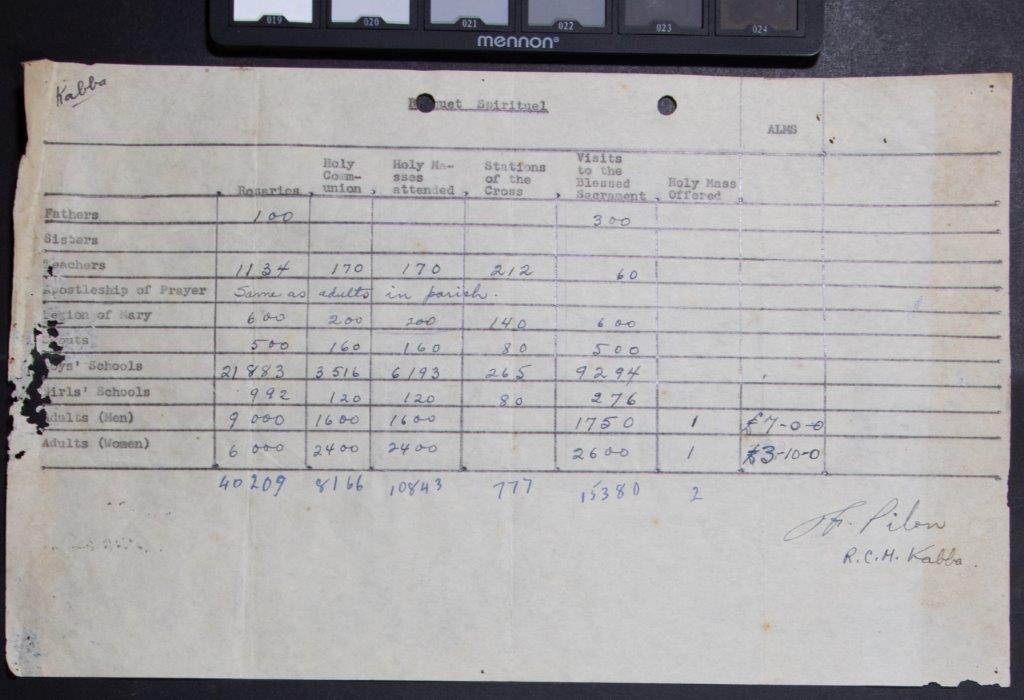 019 020 021 022 023 024
mennon
Kabba
Bouquet Spirituel
ALMS
Rosaries
Holy Communion
Holy Masses attended
Stations of the Cross
Visits to the Blessed Sacrament
Holy Mass Offered
Fathers 100 300
Sisters
Teachers 1134 170 170 212 60
Apostleship of Prayer Same as adults in parish.
Legion of Mary 600 200 200 140 600
Scouts 500 160 160 80 500
Boys' Schools 21883 3516 6193 265 9294
Girls' Schools 992 120 120 80 276
Adults (Men) 9000 1600 1600 1750 1 £7-0-0
Adults (Women) 6000 2400 2400 2600 1 £3-10-0
40209 8166 10843 777 15380 2
Pilon
R.C.M. Kabba.